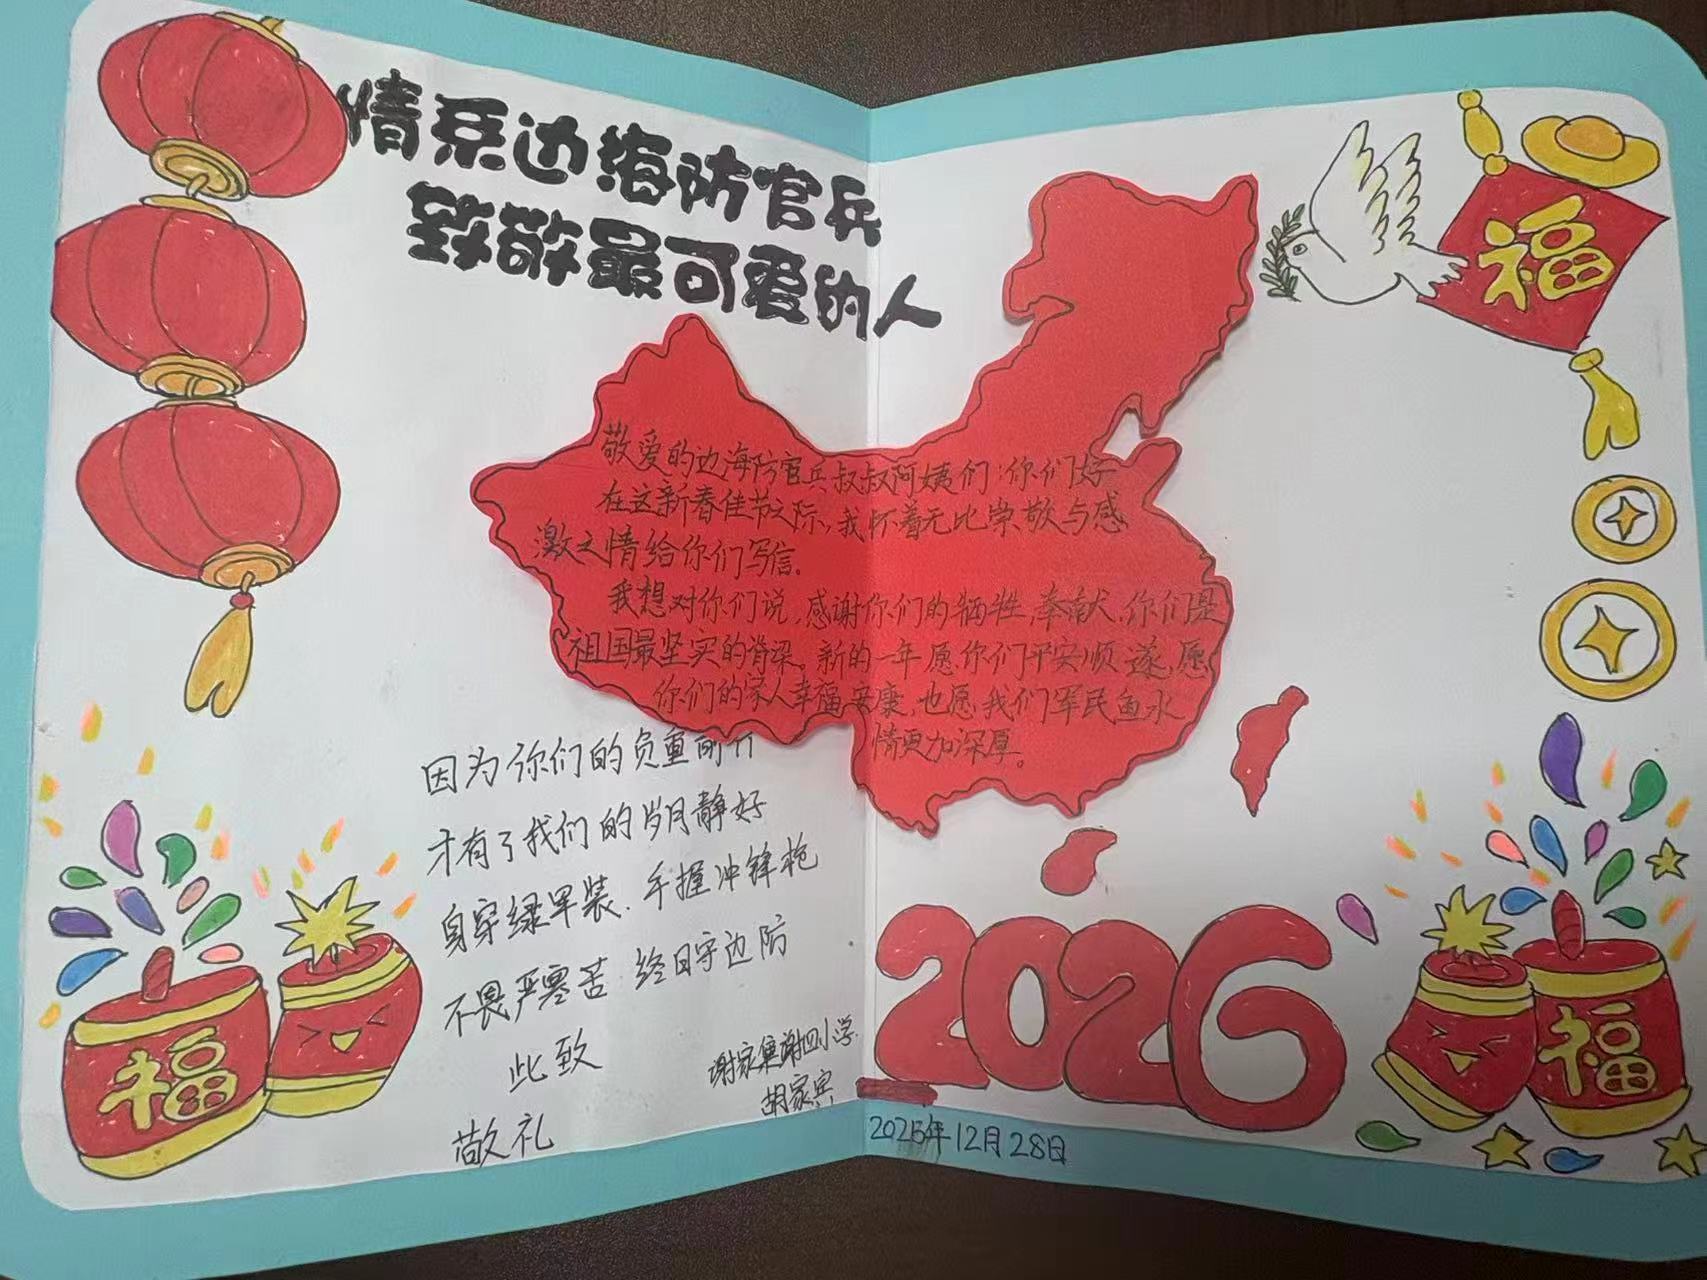 情系边海防官兵
致敬最可爱的人
福
敬爱的边海防官兵叔叔阿姨们:你们好
在这新春佳节之际,我怀着无比崇敬与感
激之情给你们写信。
我想对你们说,感谢你们的牺牲,奉献,你们是
祖国最坚实的脊梁。新的一年愿你们平安顺遂,愿
你们的家人幸福安康,也愿我们军民鱼水
情更加深厚。
因为你们的负重前行
才有了我们的岁月静好
身穿绿军装、手握冲锋枪
不畏严寒苦 终日守边防
此致
敬礼
谢家集谢四小学
胡家宾
2026
2025年12月28日
福
福